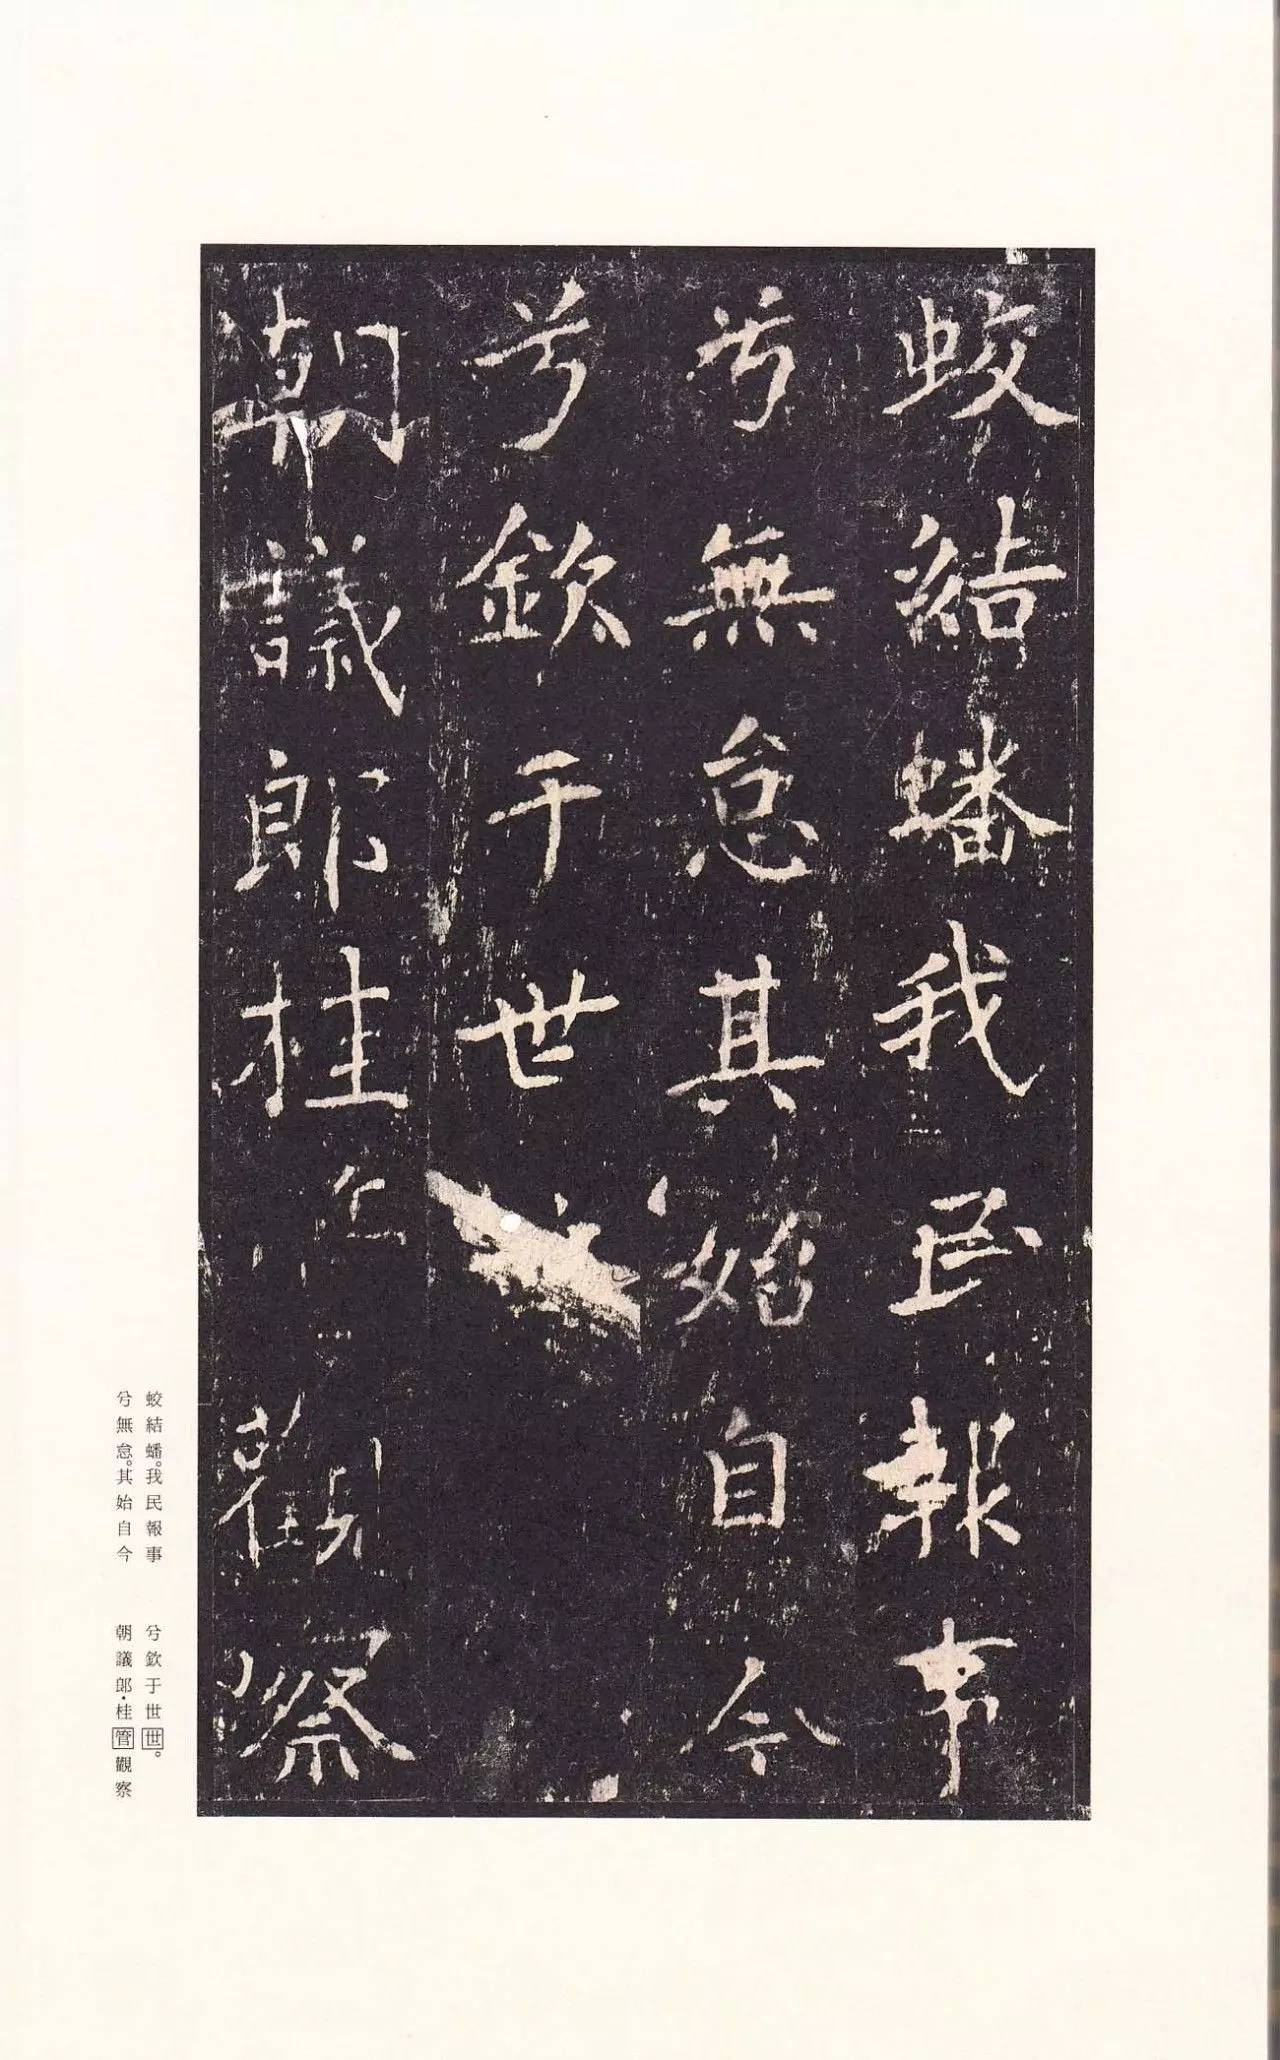 蛟結蟠我民報事
兮無怠其始自今
兮欽于世
朝議郎桂管觀察
蛟結蟠。我民報事
兮無怠。其始自今
兮欽于世世。
朝議郎・桂管觀察